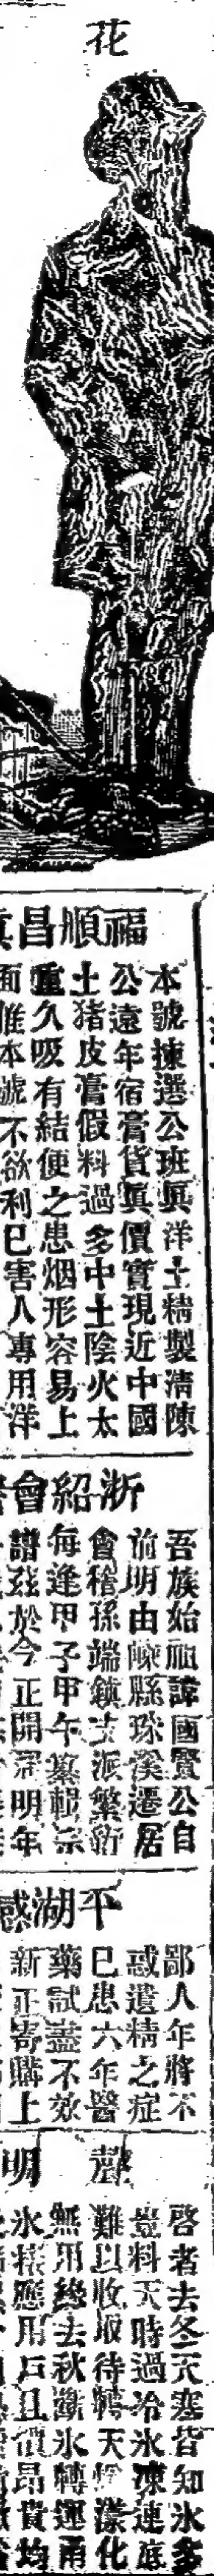 花
福順昌
本號揀選公班眞洋土精製清陳
公遠年宿膏貨眞價實現近中國
土猪皮膏假料過多中土陰火太
重久吸有結便之患烟形容易上
面惟本號不欲利已害人專用洋
浙紹會
吾族始祖諱國賢公自
前明由嵊縣珠溪遷居
會稽孫端鎮支派繁衍
每逢甲子甲午纂輯宗
譜茲於今正開 明年
平湖感
鄙人年將不
惑遺精之症
已患六年醫
藥試盡不效
新正寄購上
聲明
啓者去冬天寒皆知氷多
豈料天時過冷氷凍連底
難以收取待轉天 漾化
無用緣去秋 氷轉運甬
氷 應用 且價昂貴均